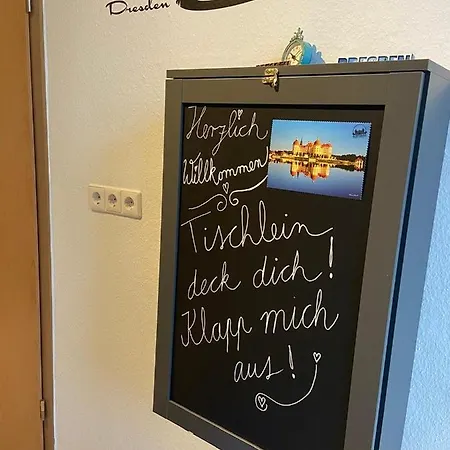 Dresden
DRESDEN
Herzlich
Willkommen!
Tischlein
deck dich!
Klapp mich
aus!